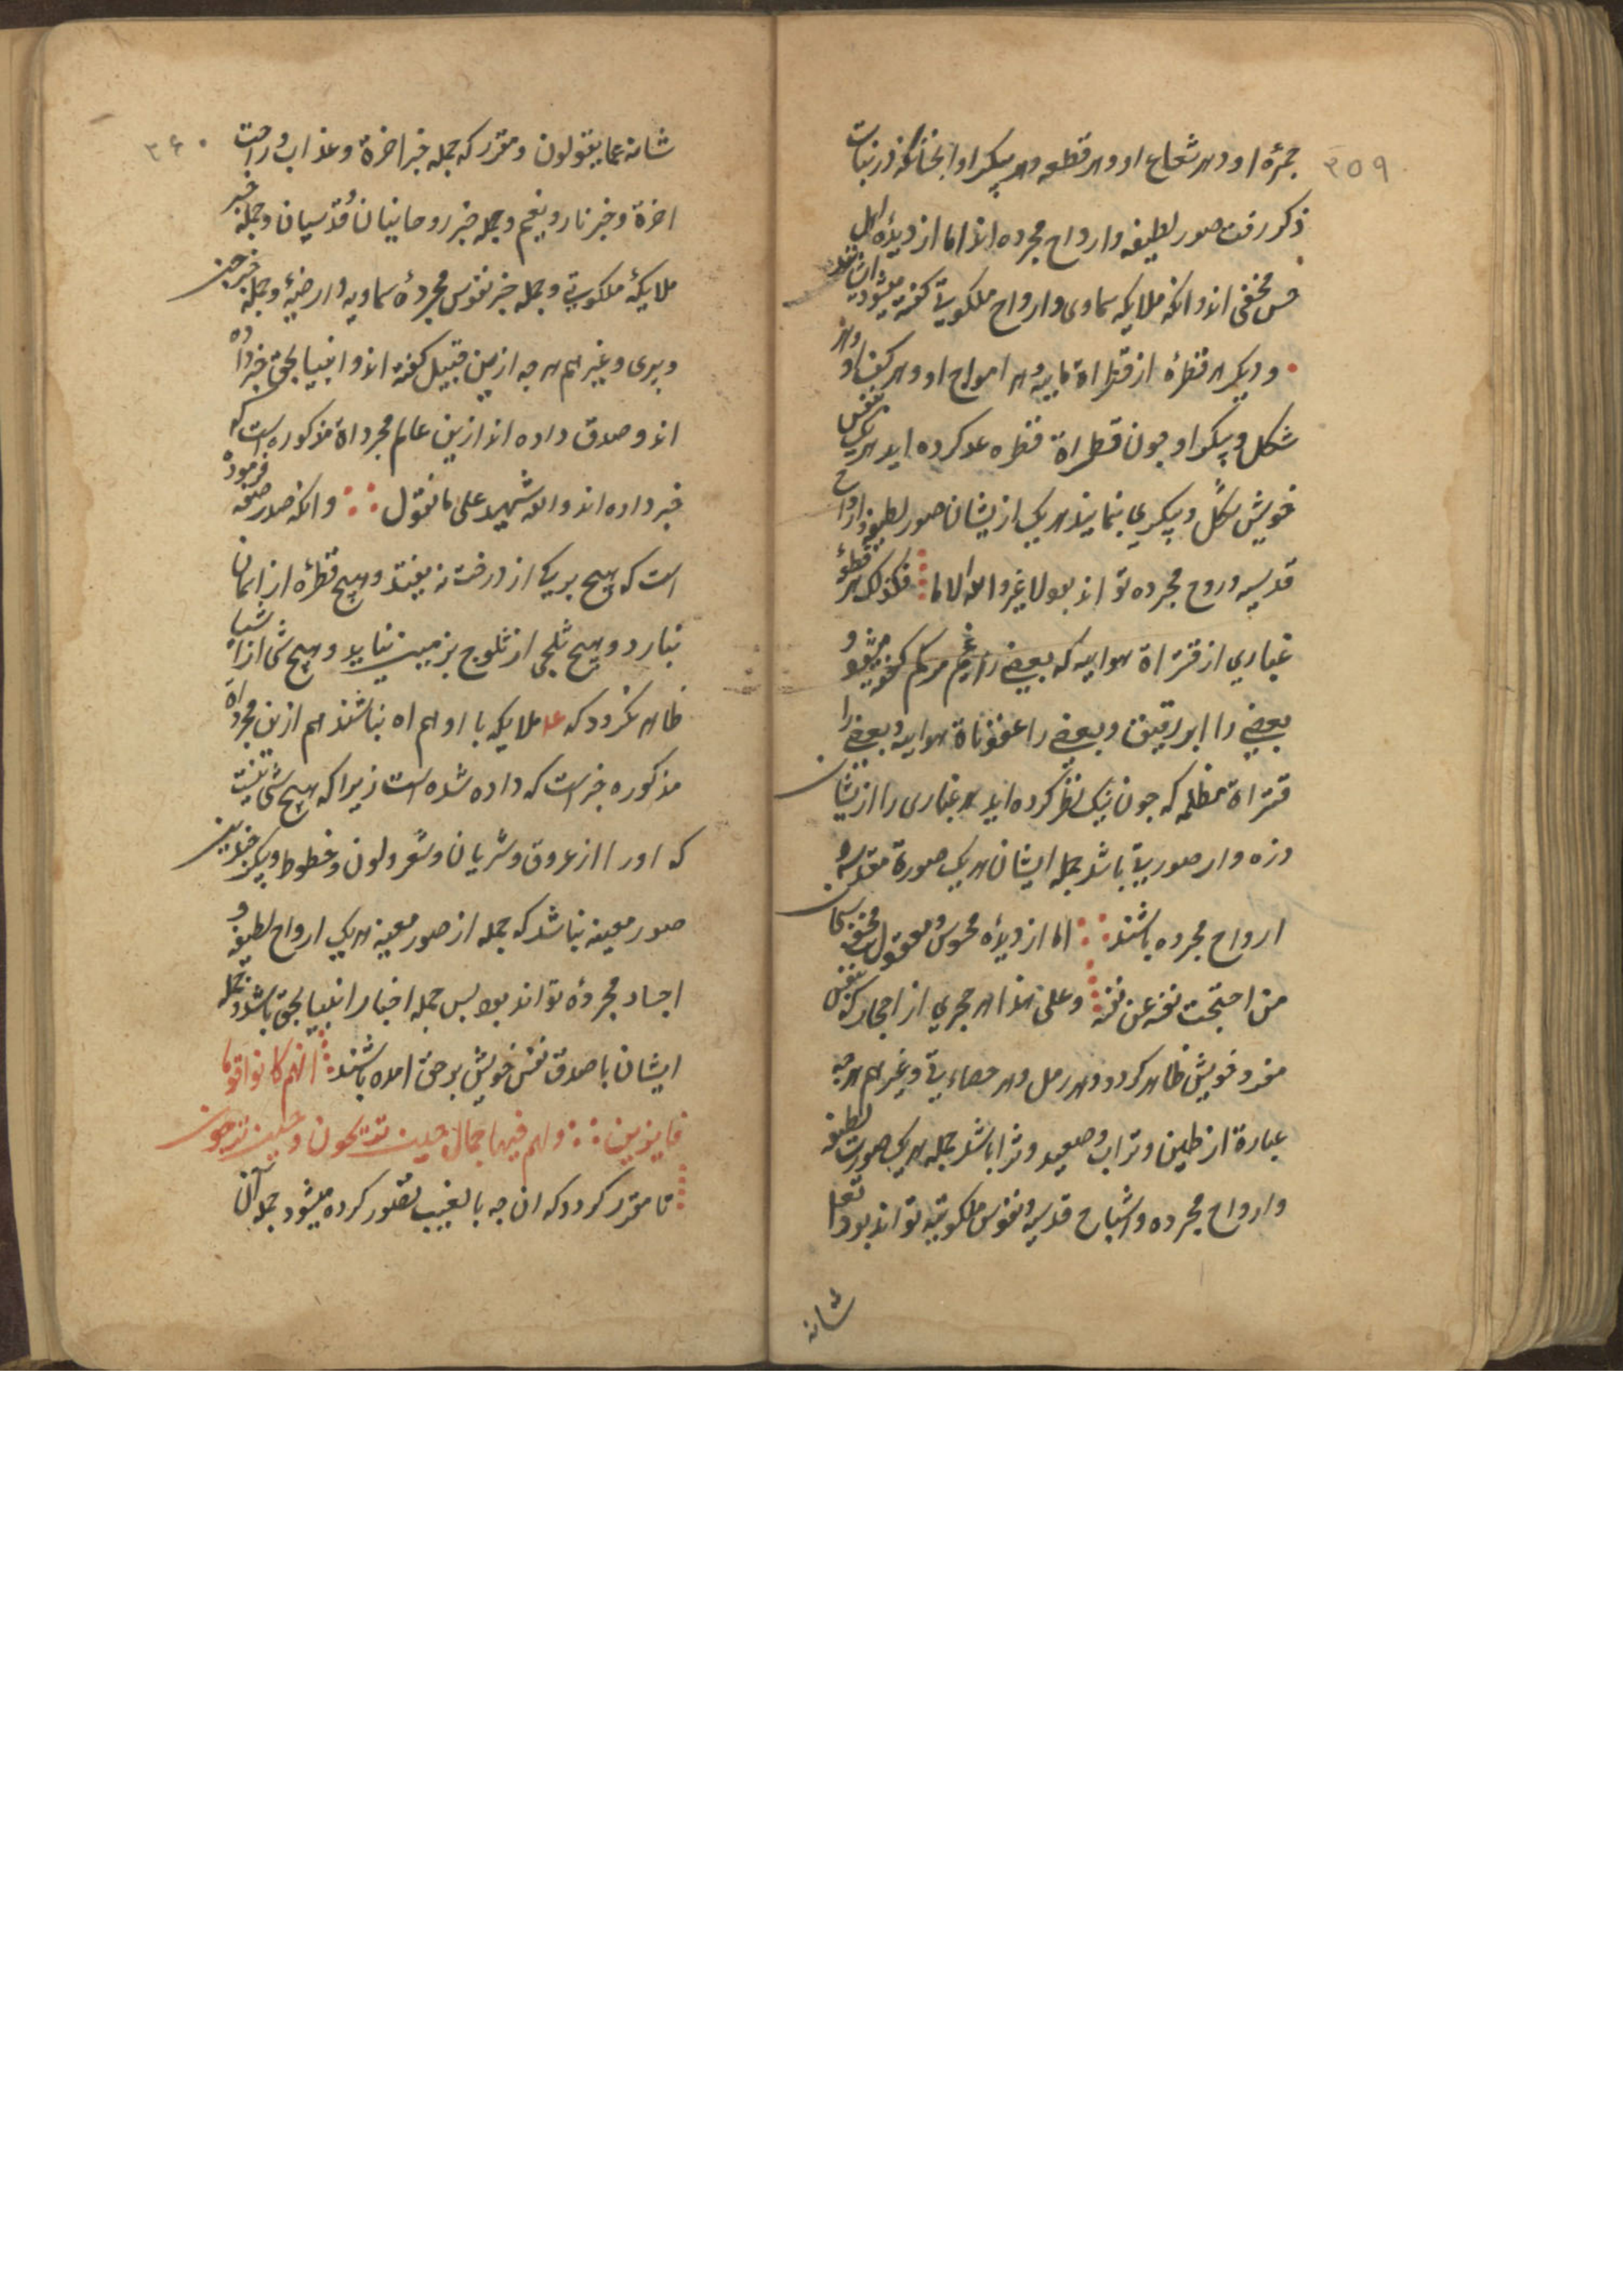 ۳۵۹
جمرهٔ او و هر شعاع او و هر قطعه و هر پیکر او انجنانکه در نبات
ذکر رفت صور لطیفه و ارواح مجرده اند اما از دیدهٔ اهل
حس مخفی اند و انکه ملایکه سماوی و ارواح ملکوتیة کفته میشود ایشانند
و دیکر هر قطرهٔ از قطراة ماییه و هر امواج او و هر کف او و هر
شکل و پیکر او جون قطراة قطره عد کرده اید هر یک بنفس
خویش شکل و پیکری بنمایند هر یک از یشان صور لطیفه و ارواح
قدسیه و روح مجرده تواند بود لا غیر و الله لا ما فکذلک هر قطرهٔ
غباری از قتراة هواییه که بعضی را غیم مرکم کفته میشود و
بعضی را ابر رقیق و بعضی را عفوناة هواییه و بعضی را
قتراة مظلمه که جون نیک نظر کرده اید هر غباری را از یشان
ذره وار صوریة باشد جمله ایشان هر یک صورة مقدسه و
ارواح مجرده باشند اما از دیدهٔ محسوس و معقول مخفی کما
من احتجت نفسه عن نفسه وعلی هذا هر حجری از احجار که بنفس
مفرد خویش ظاهر کردد و هر رمل و هر حصاءیة و غیرهم هرجه
عبارة از طین و تراب و صعید و ثرا باشد جمله هر یک صورت لطیفه
و ارواح مجرده و اشباح قدسیه و نفوس ملکوتیه تواند بود تعالی
شانه
۳۶۰
شانه عما یقولون و مقرر که جمله خبر اخرة و عذاب و راحت
اخرة و خبر نار و نعیم و جمله خبر روحانیان و قدسیان و جمله خبر
ملایکهٔ ملکوتیة و جمله خبر نفوس مجردهٔ سماویه و ارضیهٔ و جمله خبر جن
و پری و غیرهم هرجه ازین قبیل کفته اند و انبیا بحق خبر داده
اند و صدق داده اند ازین عالم مجرداة مذکوره است که
خبر داده اند والله شهید علی ما نقول و انکه صدر صفه فرموده
است که هیج بریک از درخت نه بیفتد و هیج قطرهٔ از اسمان
نبارد و هیج ثلجی از ثلوج بزمین نیاید و هیج شی از اشیا
ظاهر نکردد که ملایکه با او همراه نباشند هم ازین مجرداة
مذکوره خبر است که داده شده است زیرا که هیج شی نیست
که او را از عروق و شریان و شعر و لون و خطوط و پیکر جندین
صور معینه نباشد که جمله از صور معینه هر یک ارواح لطیفه و
اجساد مجردهٔ تواند بود بس جمله اخبار انبیا بحق باشد و جمله
ایشان با صدق نفس خویش بر حق امده باشند انهم کانوا قوما
فایزین ولهم فیها جمال حین تریحون و حین تسرحون
تا مقرر کردد که ان جه بالغیب تصور کرده میشود جمله آن